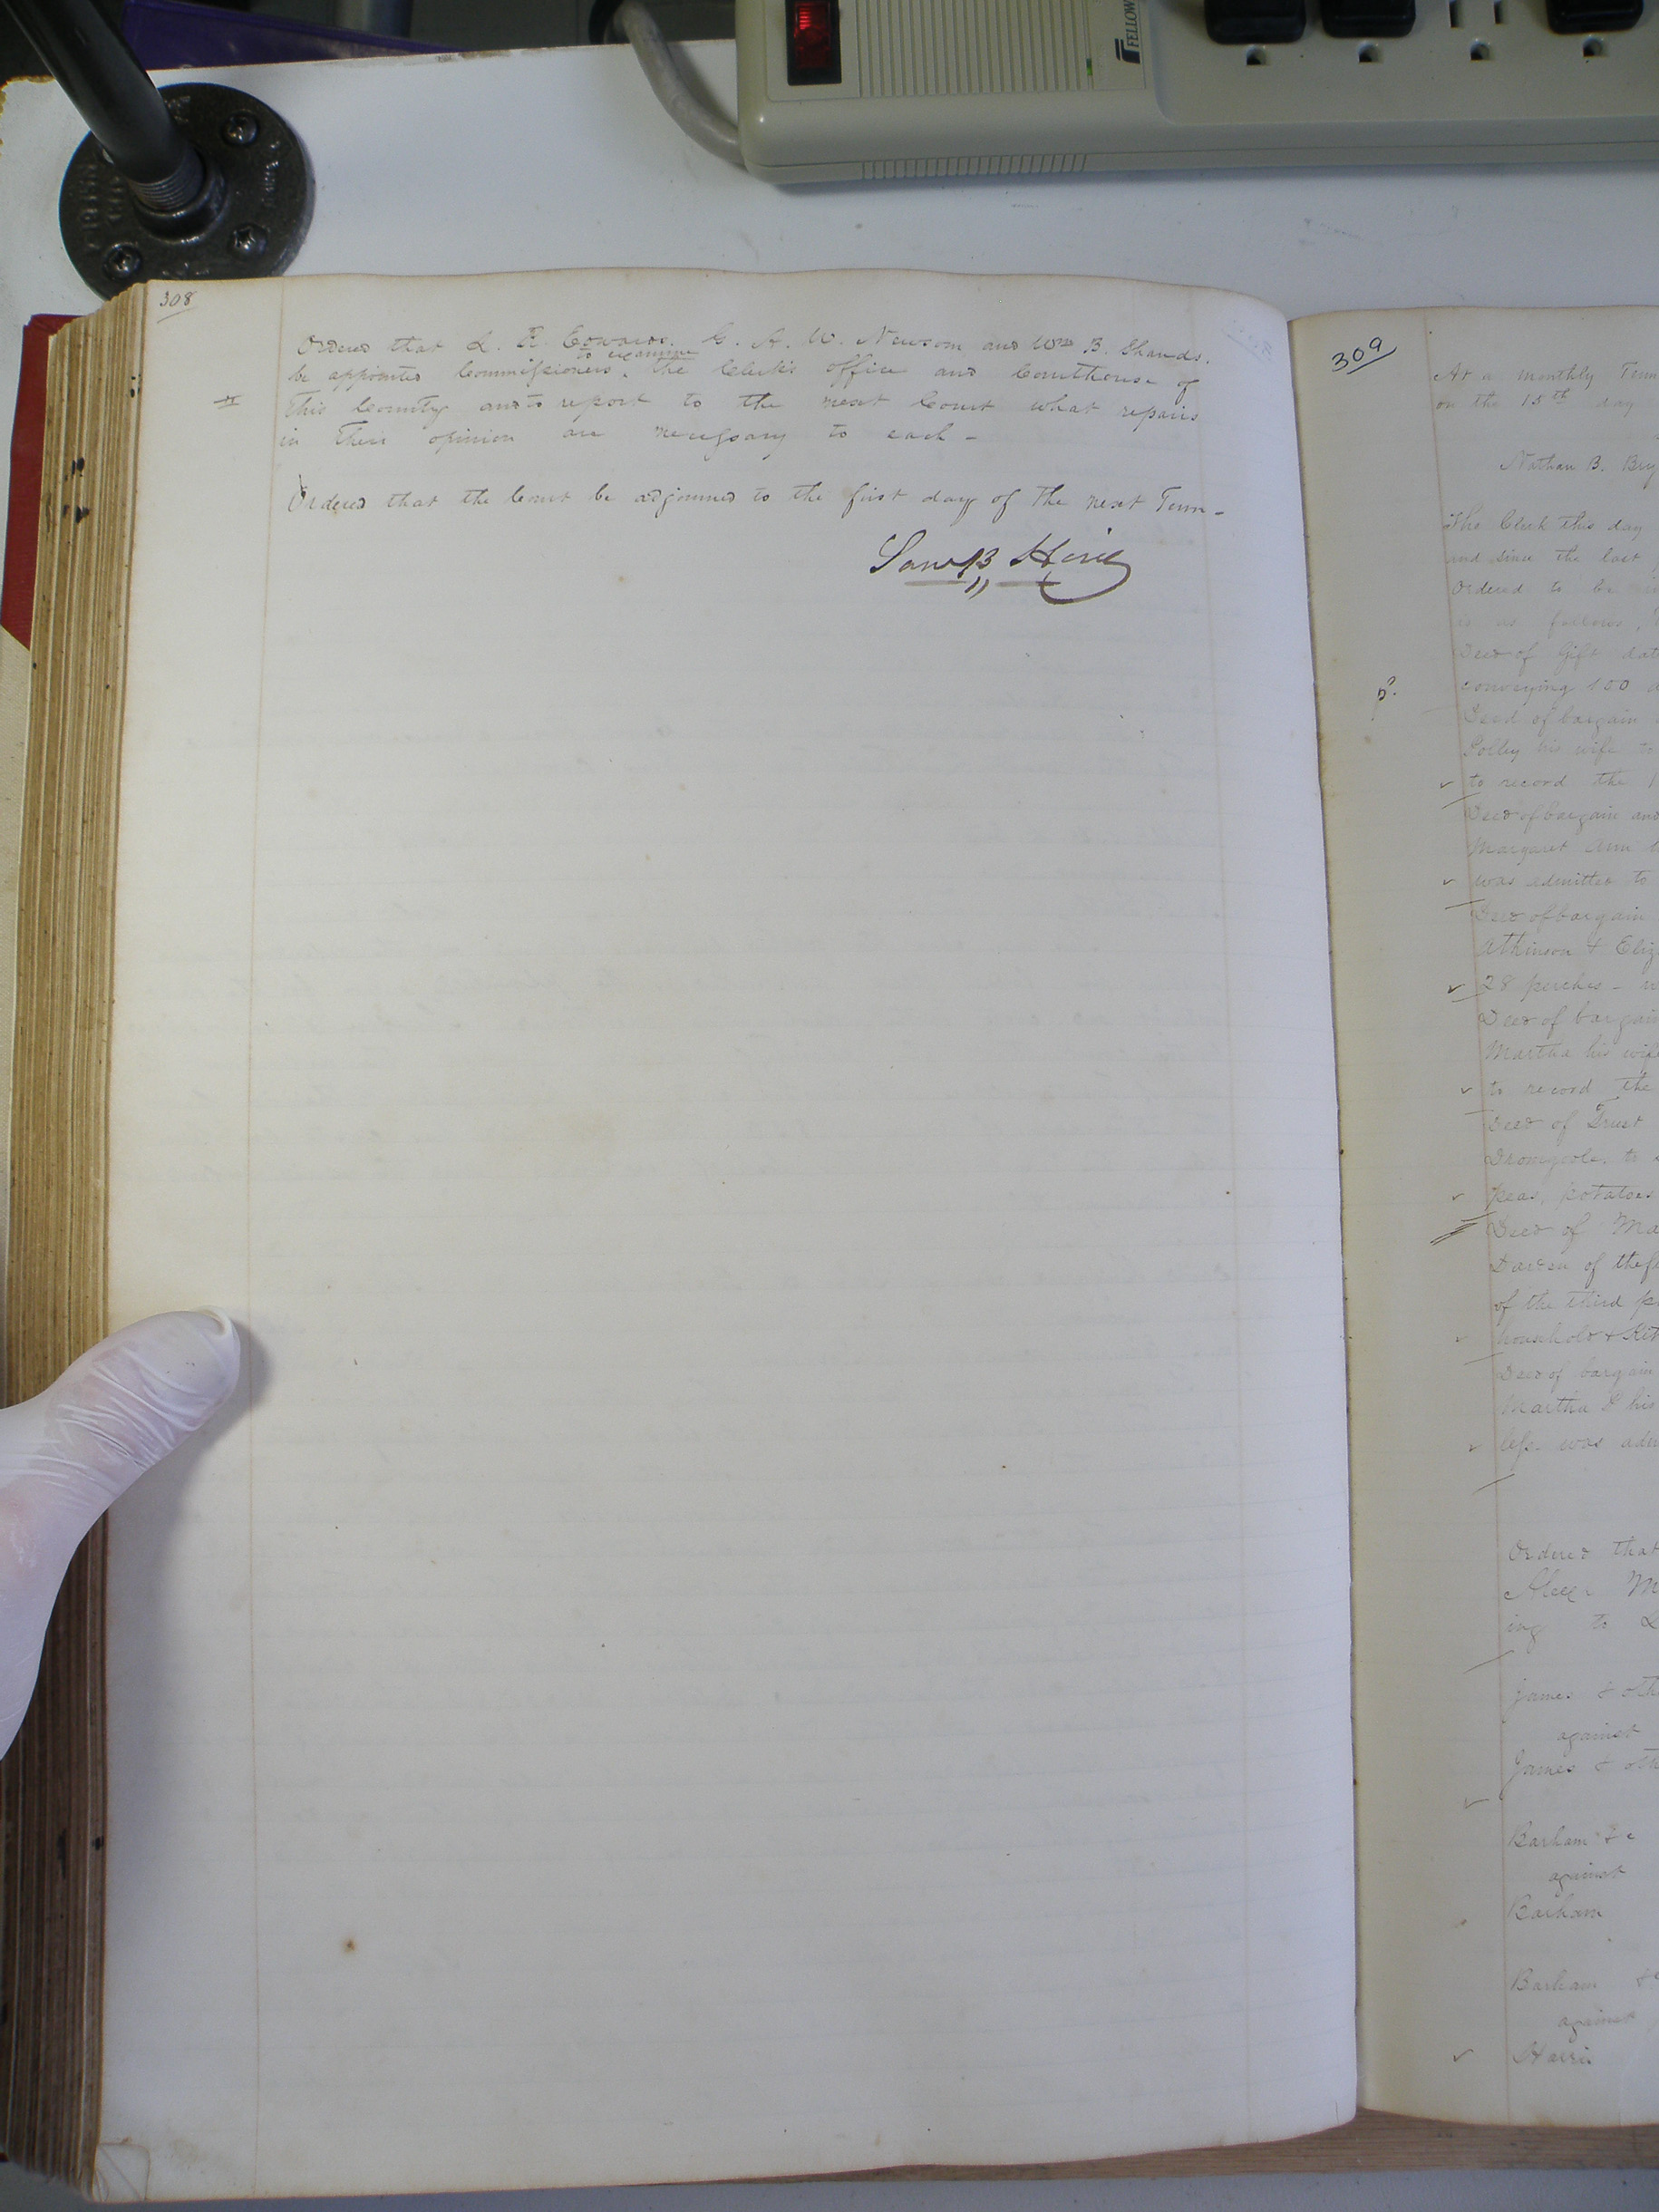 FELLOW
308
Ordered that L. R. Edwards, G. A. W. Newsom and Wm B. Shands.
be appointed Commissioners, to examine the Clerk's office and Courthouse of
this County and to report to the next Court what repairs
in their opinion are necessary to each -
Ordered that the Court be adjourned to the first day of the next Term -
309
At a monthly Term
on the 15th day
Nathan B.
The Clerk this day
and since the last
Ordered to be
is as follows,
Deed of Gift
conveying 100
Deed of bargain
Polley his wife to
to record the
Deed of bargain and
Margaret Ann
was admitted to
Deed of bargain
Atkinson &
28 perches -
Deed of bargain
Martha his wife
to record the
Deed of Trust
Dromgoole, to
peas, potatoes
Deed of
Darden of the
of the third
household &
Deed of bargain
Martha his
less - was
Ordered that
ing to
James &
against
James &
Barham &
against
Barham
Barham
against
Harris